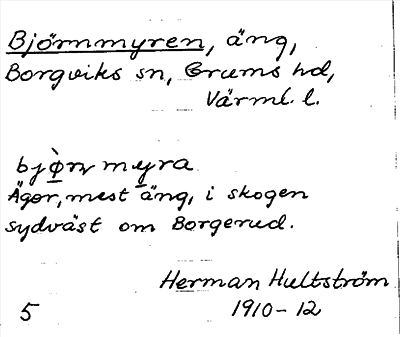 Björnmyren, äng,
Borgviks sn, Grums hd,
Värml. l.
Ägor, mest äng, i skogen
sydväst om Borgerud.
Herman Hultström
1910-12
5